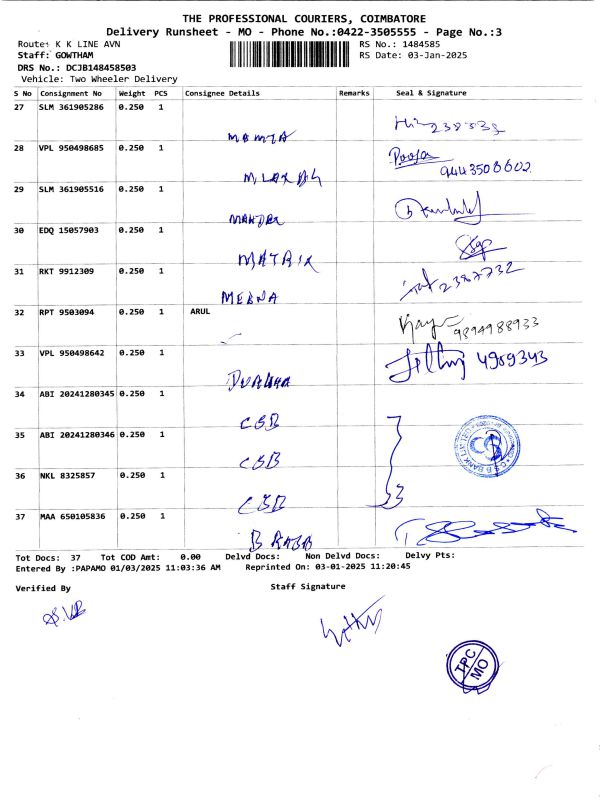 THE PROFESSIONAL COURIERS, COIMBATORE
Delivery Runsheet - MO - Phone No.:0422-3505555 - Page No.:3
Route: K K LINE AVN
RS No.: 1484585
Staff: GOWTHAM
RS Date: 03-Jan-2025
DRS No.: DCJB148458503
Vehicle: Two Wheeler Delivery
S No Consignment No Weight PCS Consignee Details Remarks Seal & Signature
27 SLM 361905286 0.250 1
MAMTA
28 VPL 950498685 0.250 1 Pooja
9443508602
29 SLM 361905516 0.250 1
30 EDQ 15057903 0.250 1
MATRIX
31 RKT 9912309 0.250 1 2387732
MEBNA
32 RPT 9503094 0.250 1 ARUL
9894988933
33 VPL 950498642 0.250 1 4989343
34 ABI 20241280345 0.250 1
CSB
35 ABI 20241280346 0.250 1
CSB
36 NKL 8325857 0.250 1
CSB
37 MAA 650105836 0.250 1
Tot Docs: 37 Tot COD Amt: 0.00 Delvd Docs: Non Delvd Docs: Delvy Pts:
Entered By :PAPAMO 01/03/2025 11:03:36 AM Reprinted On: 03-01-2025 11:20:45
Verified By Staff Signature
TPC
MO